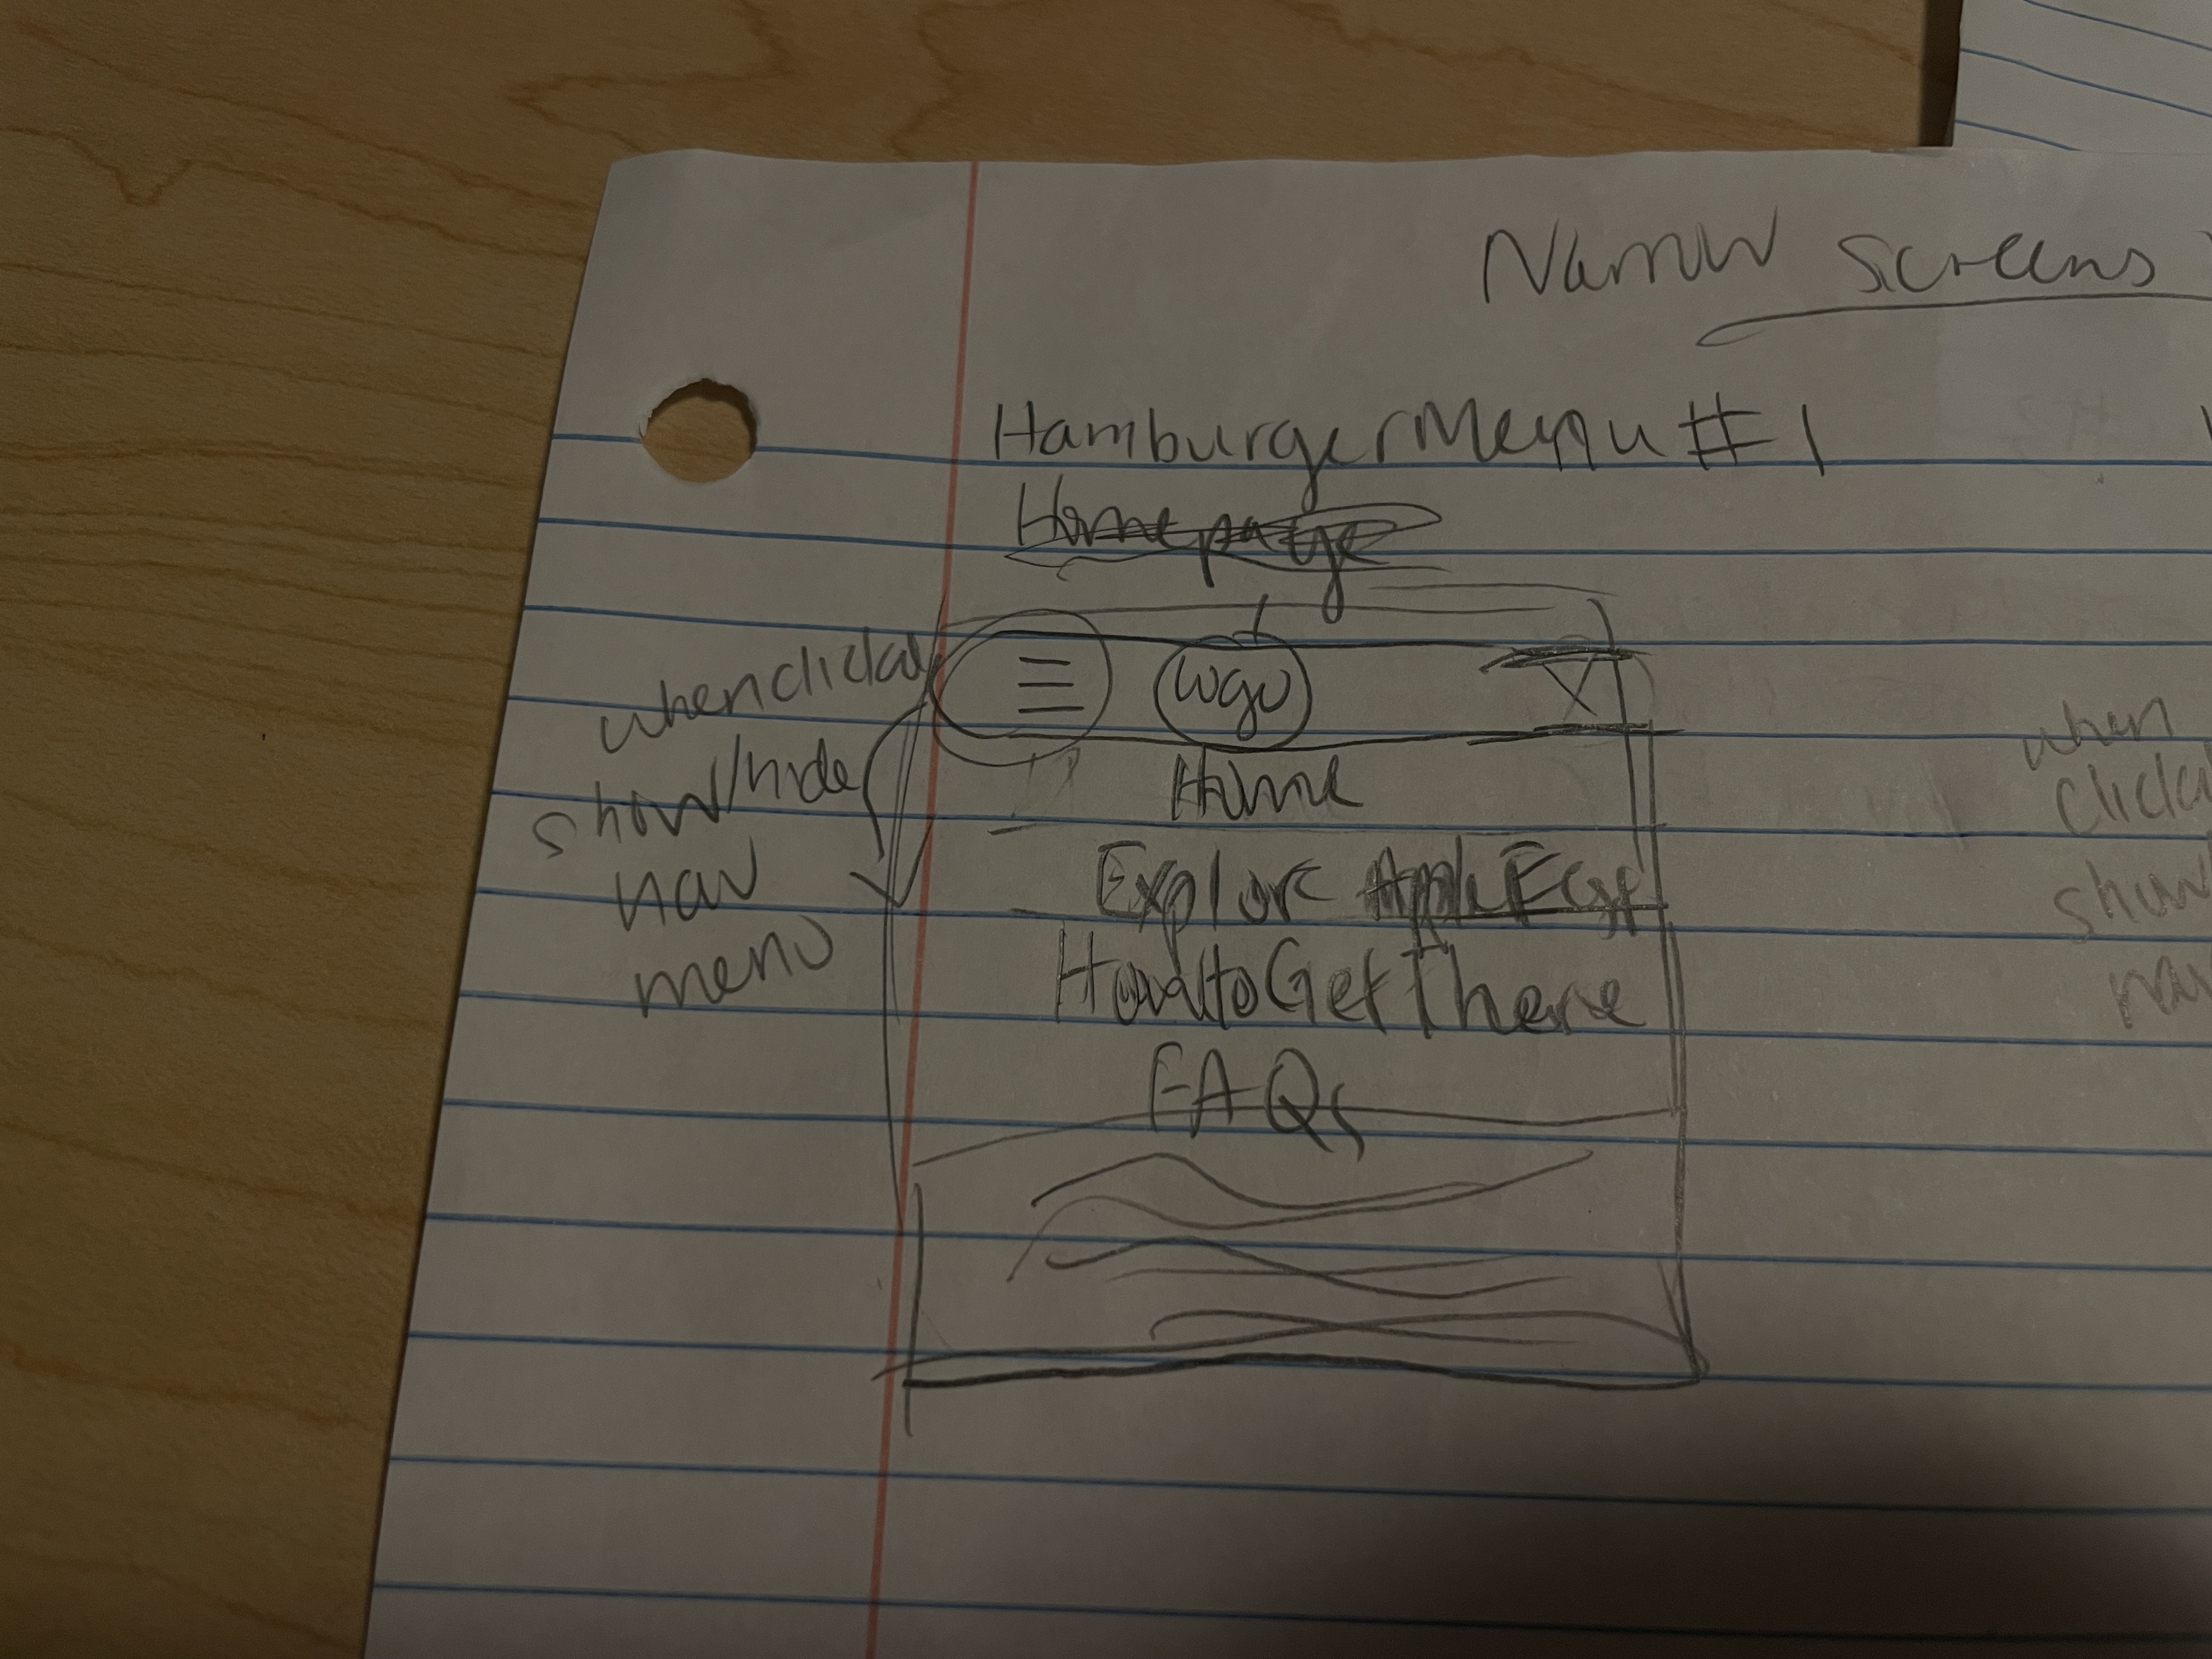 Narrow screens
Hamburger Menu #1
Homepage
when clicked
show/hide
nav
menu
logo
Home
Explore Apple Fest
How to Get There
FAQs
when
show